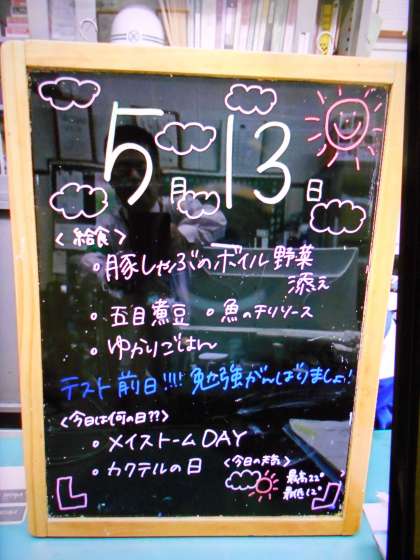 5月13日
〈給食〉
・豚しゃぶのボイル野菜
添え
・五目煮豆 ・魚のチリソース
・ゆかりごはん
テスト前日!!!! 勉強がんばりましょ!
〈今日は何の日??〉
・メイストームDAY
・カクテルの日
〈今日の天気〉
最高22°
最低12°